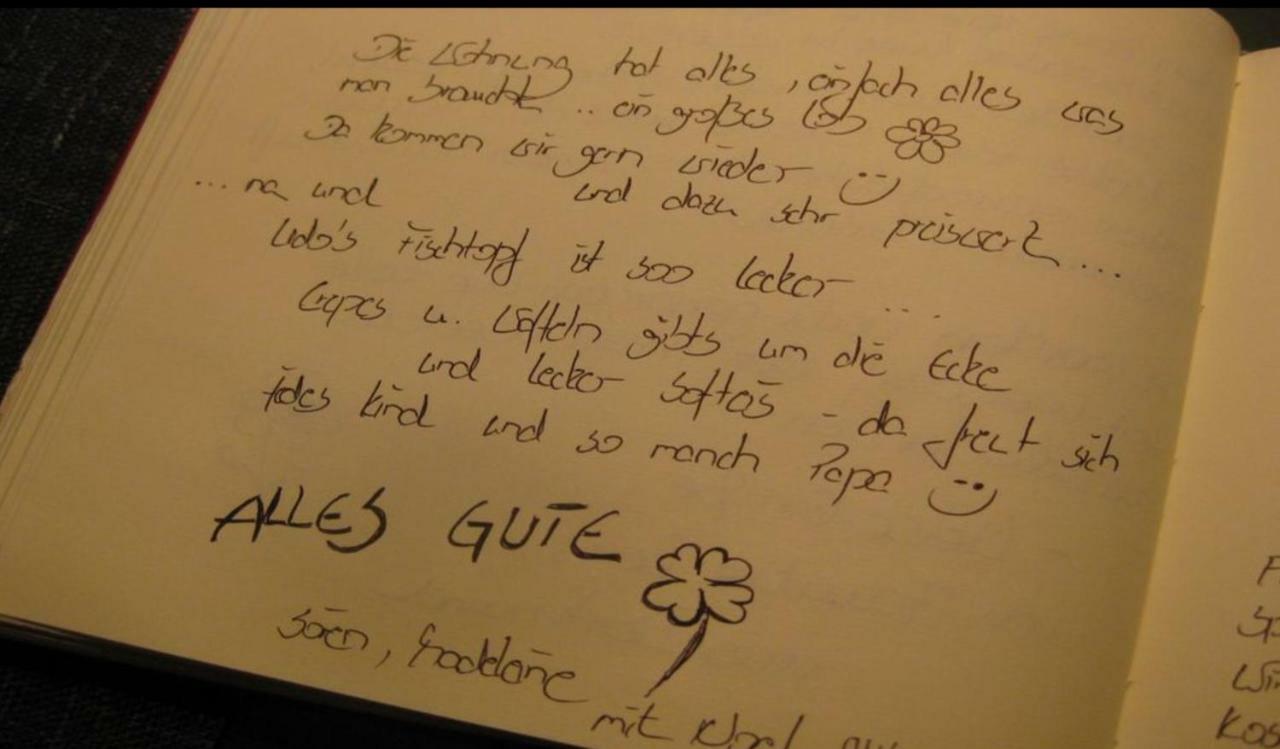 Die Wohnung hat alles, einfach alles was
man braucht .. ein großes Lob
Da kommen wir gern wieder
und dazu sehr preiswert ...
... na und
Udo's Fischtopf ist soo lecker ...
Crepes u. Waffeln gibts um die Ecke
und lecker Softeis - da freut sich
jedes Kind und so manch Papa
ALLES GUTE
Sören,
mit
Wi